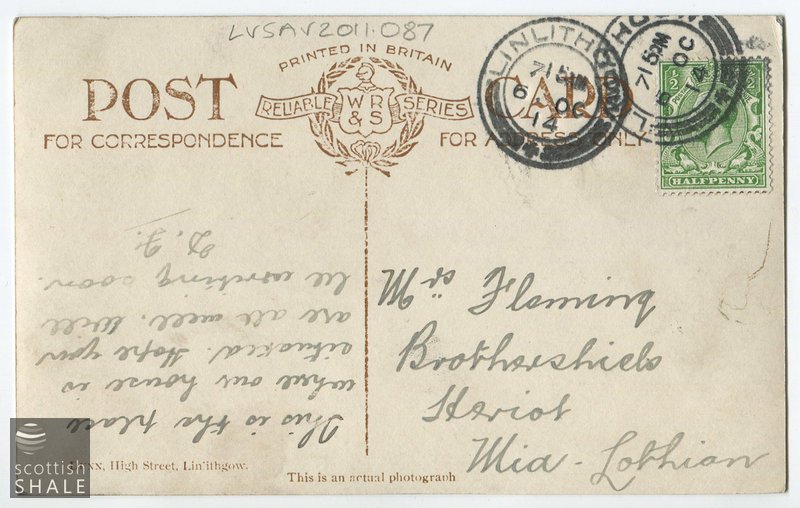 LVSAV2011.087
PRINTED IN BRITAIN
POST CARD
RELIABLE WR&S SERIES
FOR CORRESPONDENCE
FOR ADDRESS ONLY
LINLITHGOW
7 15PM
6 OC
14
LINLITHGOW
7 15PM
6 OC
14
½ ½
HALFPENNY
This is the place
where our house is
situated. Hope you
are all well. Will
be writing soon.
Mrs Fleming
Brothershiels
Heriot
Mid-Lothian
High Street, Linlithgow.
This is an actual photograph
scottish
SHALE